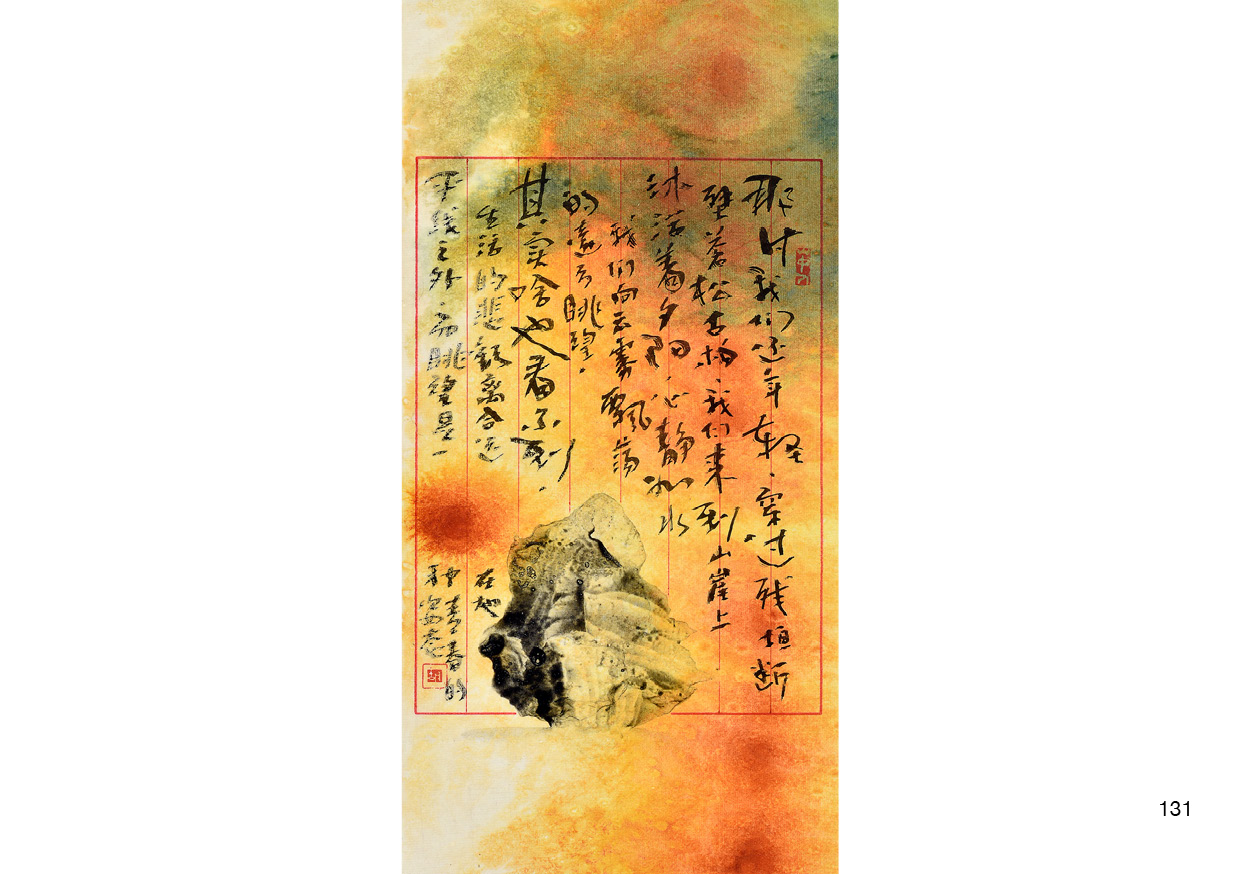 那时我们还年轻，穿过残垣断
壁蒼松古柏，我们来到山崖上
沐浴着夕阳，心静如水
我们向云雾飄荡
的遠方眺望，
其实啥也看不到，
生活的悲歡离合远在地
平线之外，而眺望是一种青春的
姿态
131